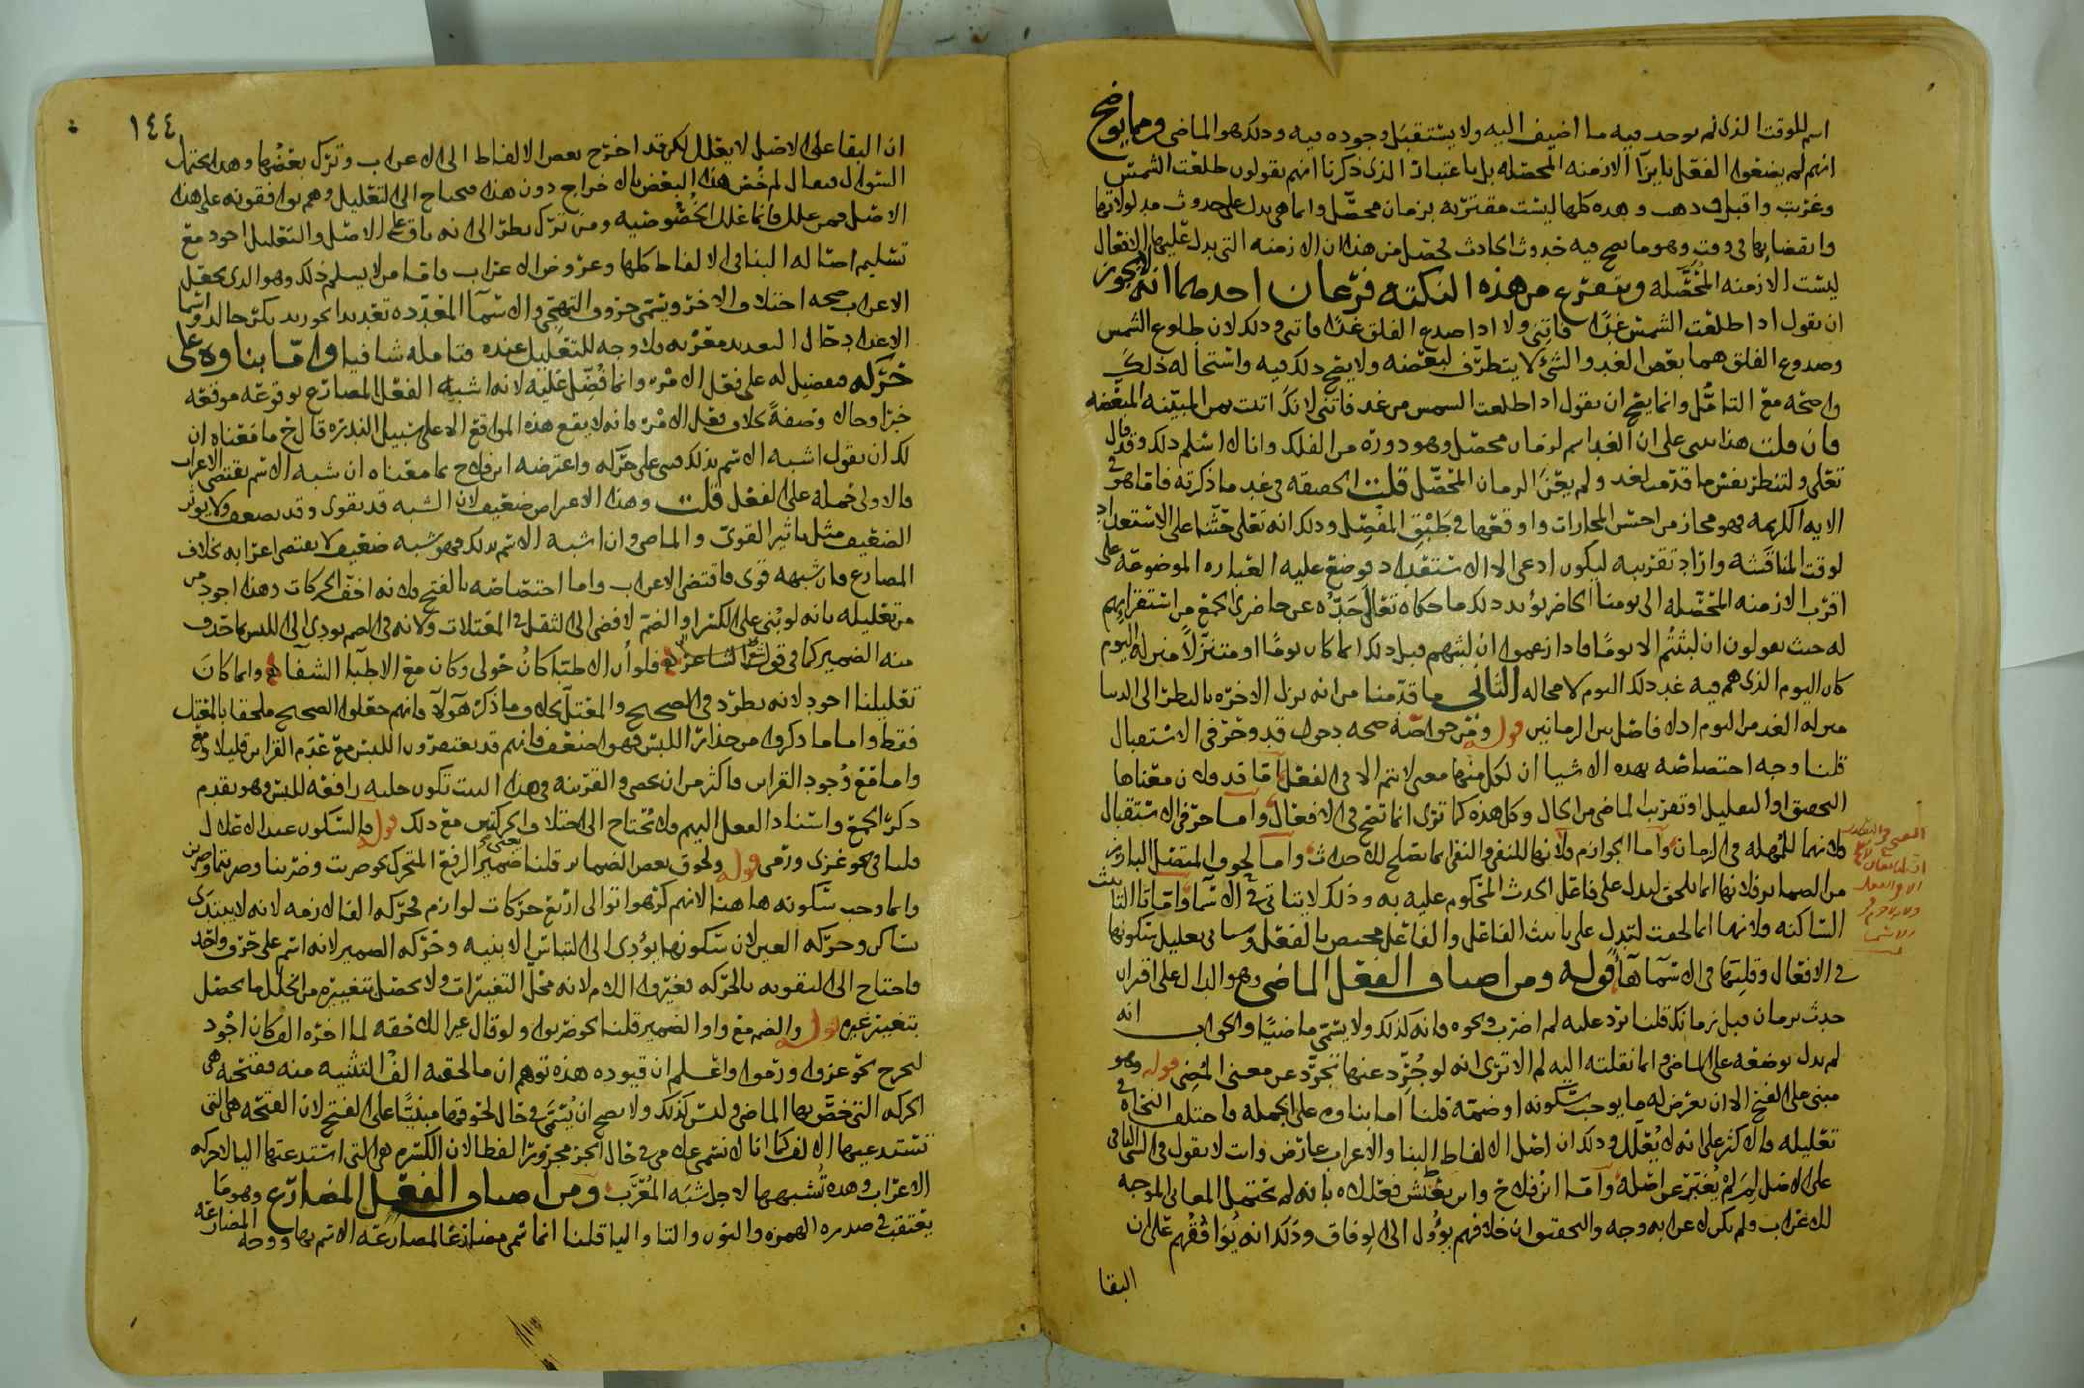 اسم للوقت الذى لم يوجد فيه ما اضيف اليه ولا يستقبل وجوده فيه وذلك هو الماضى ومما يوضح
انهم لم يضعوا الفعل بازا الازمنه المحصله بل باعتبار الذى ذكرنا انهم يقولون طلعت الشمس
وغربت واقبل وذهب وهذه كلها ليست مقترنه بزمان محصل وانما هى تدل على حدوث مدلولاتها
وانقضايها فى وقت وهو ما يصح فيه حدوث الحادث فحصل من هذا ان الازمنه التى يدل عليها الافعال
ليست الازمنه المحصله ويتفرع من هذه النكته فرعان احدهما انه لا يجوز
ان يقول اذا طلعت الشمس غدا فاتنى ولا اذا صدع الفلق غدا فاتنى وذلك لان طلوع الشمس
وصدوع الفلق هما بعض الغد والشى لا يتطرف لبعضه ولا يصح ذلك فيه واستحاله ذلك
واضحه مع التامل وانما يصح ان يقول اذا طلعت الشمس من غد فاتنى لانك اتيت بمن المبينه المبعضه
فان قلت هذا مبنى على ان الغد اسم لزمان محصل وهو دوره من الفلك وانا لا اسلم ذلك وقد قال
تعلى ولتنظر نفس ما قدمت لغد ولم يعن الزمان المحصل قلت الحقيقه فى غد ما ذكرته فاما هو فى
الايه الكريمه فهو مجاز من احسن المجازات واوقعها فى طبق المفصل وذلك انه تعلى حثنا على الاستعداد
لوقت المناقشه واراد تقريبه ليكون ادعى الى الاستعداد فوضع عليه العباره الموضوعه على
اقرب الازمنه المحصله الى يومنا الحاضر يويد ذلك ما حكاه تعالى جده عن حاضرى الجمع من استقرايهم
له حيث يقولون ان لبثتم الا يوما فاذا زعموا ان لبثهم قبل ذلك انما كان يوما او متنزلا منزله اليوم
كان اليوم الذى هم فيه غد ذلك اليوم لا محاله الثانى ما قدمنا من انه نزل الاخره بالنظر الى الدنيا
منزله الغد من اليوم اذ لا فاصل بين الزمانين قوله ومن خواصه صحه دخول قد وحرفى الاستقبال
قلنا وجه اختصاصه بهذه الاشيا ان لكل منها معنى لا يتم الا فى الفعل اما قد فلان معناها
التحقيق او التقليل او تقريب الماضى من الحال وكل هذه كما ترى انما تصح فى الافعال واما حرفى الاستقبال
فلانهما للمهله فى الزمان واما الجوازم فلانها للنفى والنفى انما يصلح للاحداث واما لحوق المتصل البارز
من الضماير فلانها انما يلحق ليدل على فاعل الحدث المحكوم عليه به وذلك لا يتاتى فى الاسما واما تا التانيث
الساكنه فلانها انما لحقت لتدل على تانيث الفاعل والفاعل مختص بالفعل وسياتى تعليل سكونها
فى الافعال وقلبتها فى الاسما ها قوله ومن اصناف الفعل الماضى وهو الدال على اقتران
حدث بزمان قبل زمانك قلنا يرد عليه لم اضرب ونحوه فانه كذلك ولا يسمى ماضيا والجواب انه
لم يدل بوضعه على الماضى وانما نقلته اليه لم الا ترى انه لو جرد عنها تجرد عن معنى المضى قوله وهو
مبنى على الفتح الا ان يعرض له ما يوجب سكونه او ضمه قلنا اما بناوه على الجمله فاختلف النحاه فى
تعليله فالاكثر على انه لا يعلل وذلك ان اصل الالفاظ البنا والاعراب عارض وانت لا تقول فى الشى الباقى
على الاصل لم لم يغير عن اصله واما ابن فلاح وابن يعيش فعللاه بانه لم تحتمل المعانى الموجبه
للاعراب ولم يكن لاعرابه وجه والتحقيق ان خلافهم يوول الى الوفاق وذلك انه يوافقهم على ان
البقا
١٤٤
ان البقا على الاصل لا يعلل لكن قد اخرج بعض الالفاظ الى الاعراب وترك بعضها وهذا يحتمل
السوال فيقال لم خص هذا البعض بالاخراج دون هذا فيحتاج الى التعليل وهم يوافقونه على هذا
الاصل فمن علل فانما علل الخصوصيه ومن ترك نظر الى انه باق على الاصل والتعليل اجود مع
تسليم اصاله البنا فى الالفاظ كلها وعروض الاعراب فاما من لا يسلم ذلك وهو الذى يجعل
الاعراب صحه اختلاف الاخر ويسمى حروف التهجى والاسما المعدده تعديدا نحو زيد بكر خالد واسما
الاعراب حال التعديد معربه فلا وجه للتعليل عنده فتامله شافيا واما بناوه على
حركه فتفضيل له على فعل الامر وانما فضل عليه لانه اشبه الفعل المضارع بوقوعه موقعه
خبرا وحالا وصفة بخلاف فعل الامر فانه لا يقع هذه المواقع الا على سبيل الندره قال خ ما معناه ان
لك ان تقول اشبه الاسم بذلك فبنى على حركه واعترضه ابن فلاح بما معناه ان شبه الاسم يقتضى الاعراب
فالاولى حمله على الفعل قلت وهذا الاعتراض ضعيف لان الشبه قد يقوى وقد يضعف ولا يوثر
الضعيف مثل تاثير القوى والماضى وان اشبه الاسم بذلك فهو شبه ضعيف لا يقتضى اعرابه بخلاف
المضارع فان شبهه قوى فاقتضى الاعراب واما اختصاصه بالفتح فلانه اخف الحركات وهذا اجود من
من تعليله بانه لو بنى على الكسر او الضم لافضى الى الثقل فى المعتلات ولانه فى الضم يودى الى اللبس بما حذف
منه الضمير كما فى قول الشاعر فلو ان الاطبا كان حولى وكان مع الاطبا الشفا وانما كان
تعليلنا اجود لانه يطرد فى الصحيح والمعتل بخلاف ما ذكر هولا فانهم جعلوا الصحيح ملحقا بالمعتل
فقط واما ما ذكروا من حذار اللبس فهو اضعف فانهم قد يغتفرون اللبس مع عدم القراين قليلا
واما مع وجود القراين فاكثر من ان يحصى والقرينه فى هذا البيت تكون جليه رافعه للبس وهو تقدم
ذكر الجمع واسناد الفعل اليهم فلا يحتاج الى اختلاف الحركتين مع ذلك قوله فالسكون عند الاعلال
قلنا فى نحو غزى ورمى قوله ولحوق بعض الضماير قلنا يعنى ضمير الرفع المتحرك نحو ضربت وضربنا وضربتما وضربن
وانما وجب سكونه هاهنا لانهم كرهوا توالى اربع حركات لوازم فحركه الفا لازمه لانه لا يبتدى
بساكن وحركه العين لان سكونها يودى الى التباس الابنيه وحركه الضمير لانه اسم على حرف واحد
فاحتاج الى التقويه بالحركه فغيروا اللام لانه محل التغييرات ولا يحصل بتغييره من الخلل ما يحصل
بتغيير غيره قوله والضم مع واو الضمير قلنا نحو ضربوا ولو قال غير الالف حقه لما اخره الف كان اجود
ليخرج نحو غزوا ورموا واعلم ان قيوده هذه توهم ان ما لحقه الف التثنيه منه ففتحه هى
الحركه التى خص بها الماضى وليس كذلك ولا يصح ان يسمى فى حال لحوقها مبنيا على الفتح لان الفتحه هى التى
تستدعيها الالف كما انا لا نسمى غلامى فى حال الجر مجرورا لفظا لان الكسره هى التى استدعتها اليا لا حركه
الاعراب وهذه تشبهها لاجل شبه المعرب ومن اصناف الفعل المضارع وهو ما
يعتقب فى صدره الهمزه والنون والتا واليا قلنا انما سمى مضارعا لمضارعته الاسم